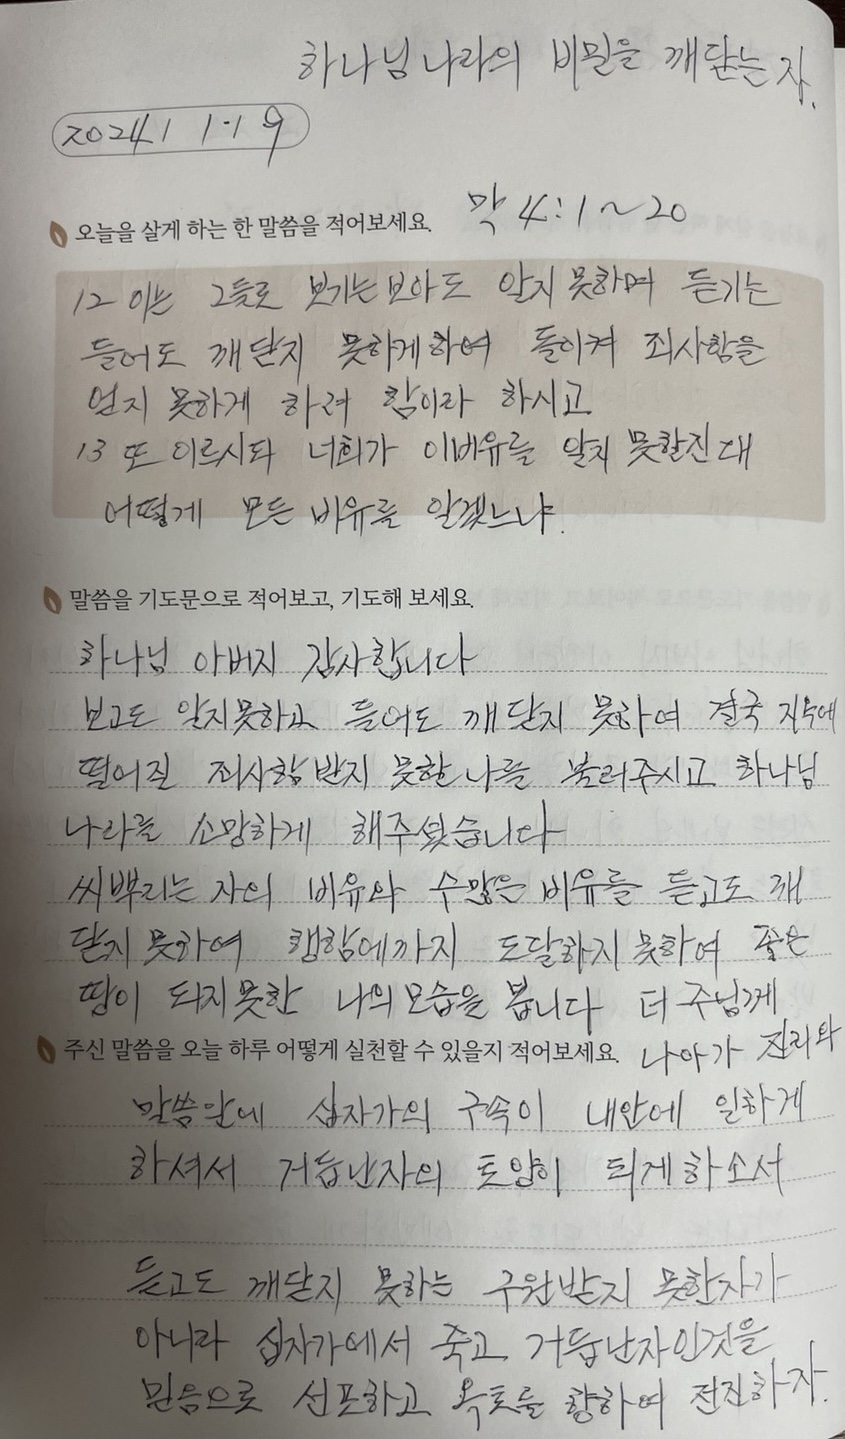 하나님 나라의 비밀을 깨닫는 자.
2024 1 1.19
오늘을 살게 하는 한 말씀을 적어보세요. 막 4:1~20
12 이는 그들로 보기는 보아도 알지 못하며 듣기는
들어도 깨닫지 못하게 하여 돌이켜 죄사함을
얻지 못하게 하려 함이라 하시고
13 또 이르시되 너희가 이비유를 알지 못할진대
어떻게 모든 비유를 알겠느냐.
말씀을 기도문으로 적어보고, 기도해 보세요.
하나님 아버지 감사합니다
보고도 알지못하고 들어도 깨닫지 못하여 결국 지옥에
떨어질 죄사함 받지 못할 나를 불러주시고 하나님
나라를 소망하게 해주셨습니다
씨뿌리는 자의 비유와 수많은 비유를 듣고도 깨
닫지 못하여 행함에까지 도달하지 못하여 좋은
땅이 되지못한 나의 모습을 봅니다 더 주님께
주신 말씀을 오늘 하루 어떻게 실천할 수 있을지 적어보세요. 나아가 진리와
말씀안에 십자가의 구속이 내안에 일하게
하셔서 거듭난자의 토양이 되게 하소서
듣고도 깨닫지 못하는 구원받지 못한자가
아니라 십자가에서 죽고 거듭난자인것을
믿음으로 선포하고 옥토를 향하여 전진하자.